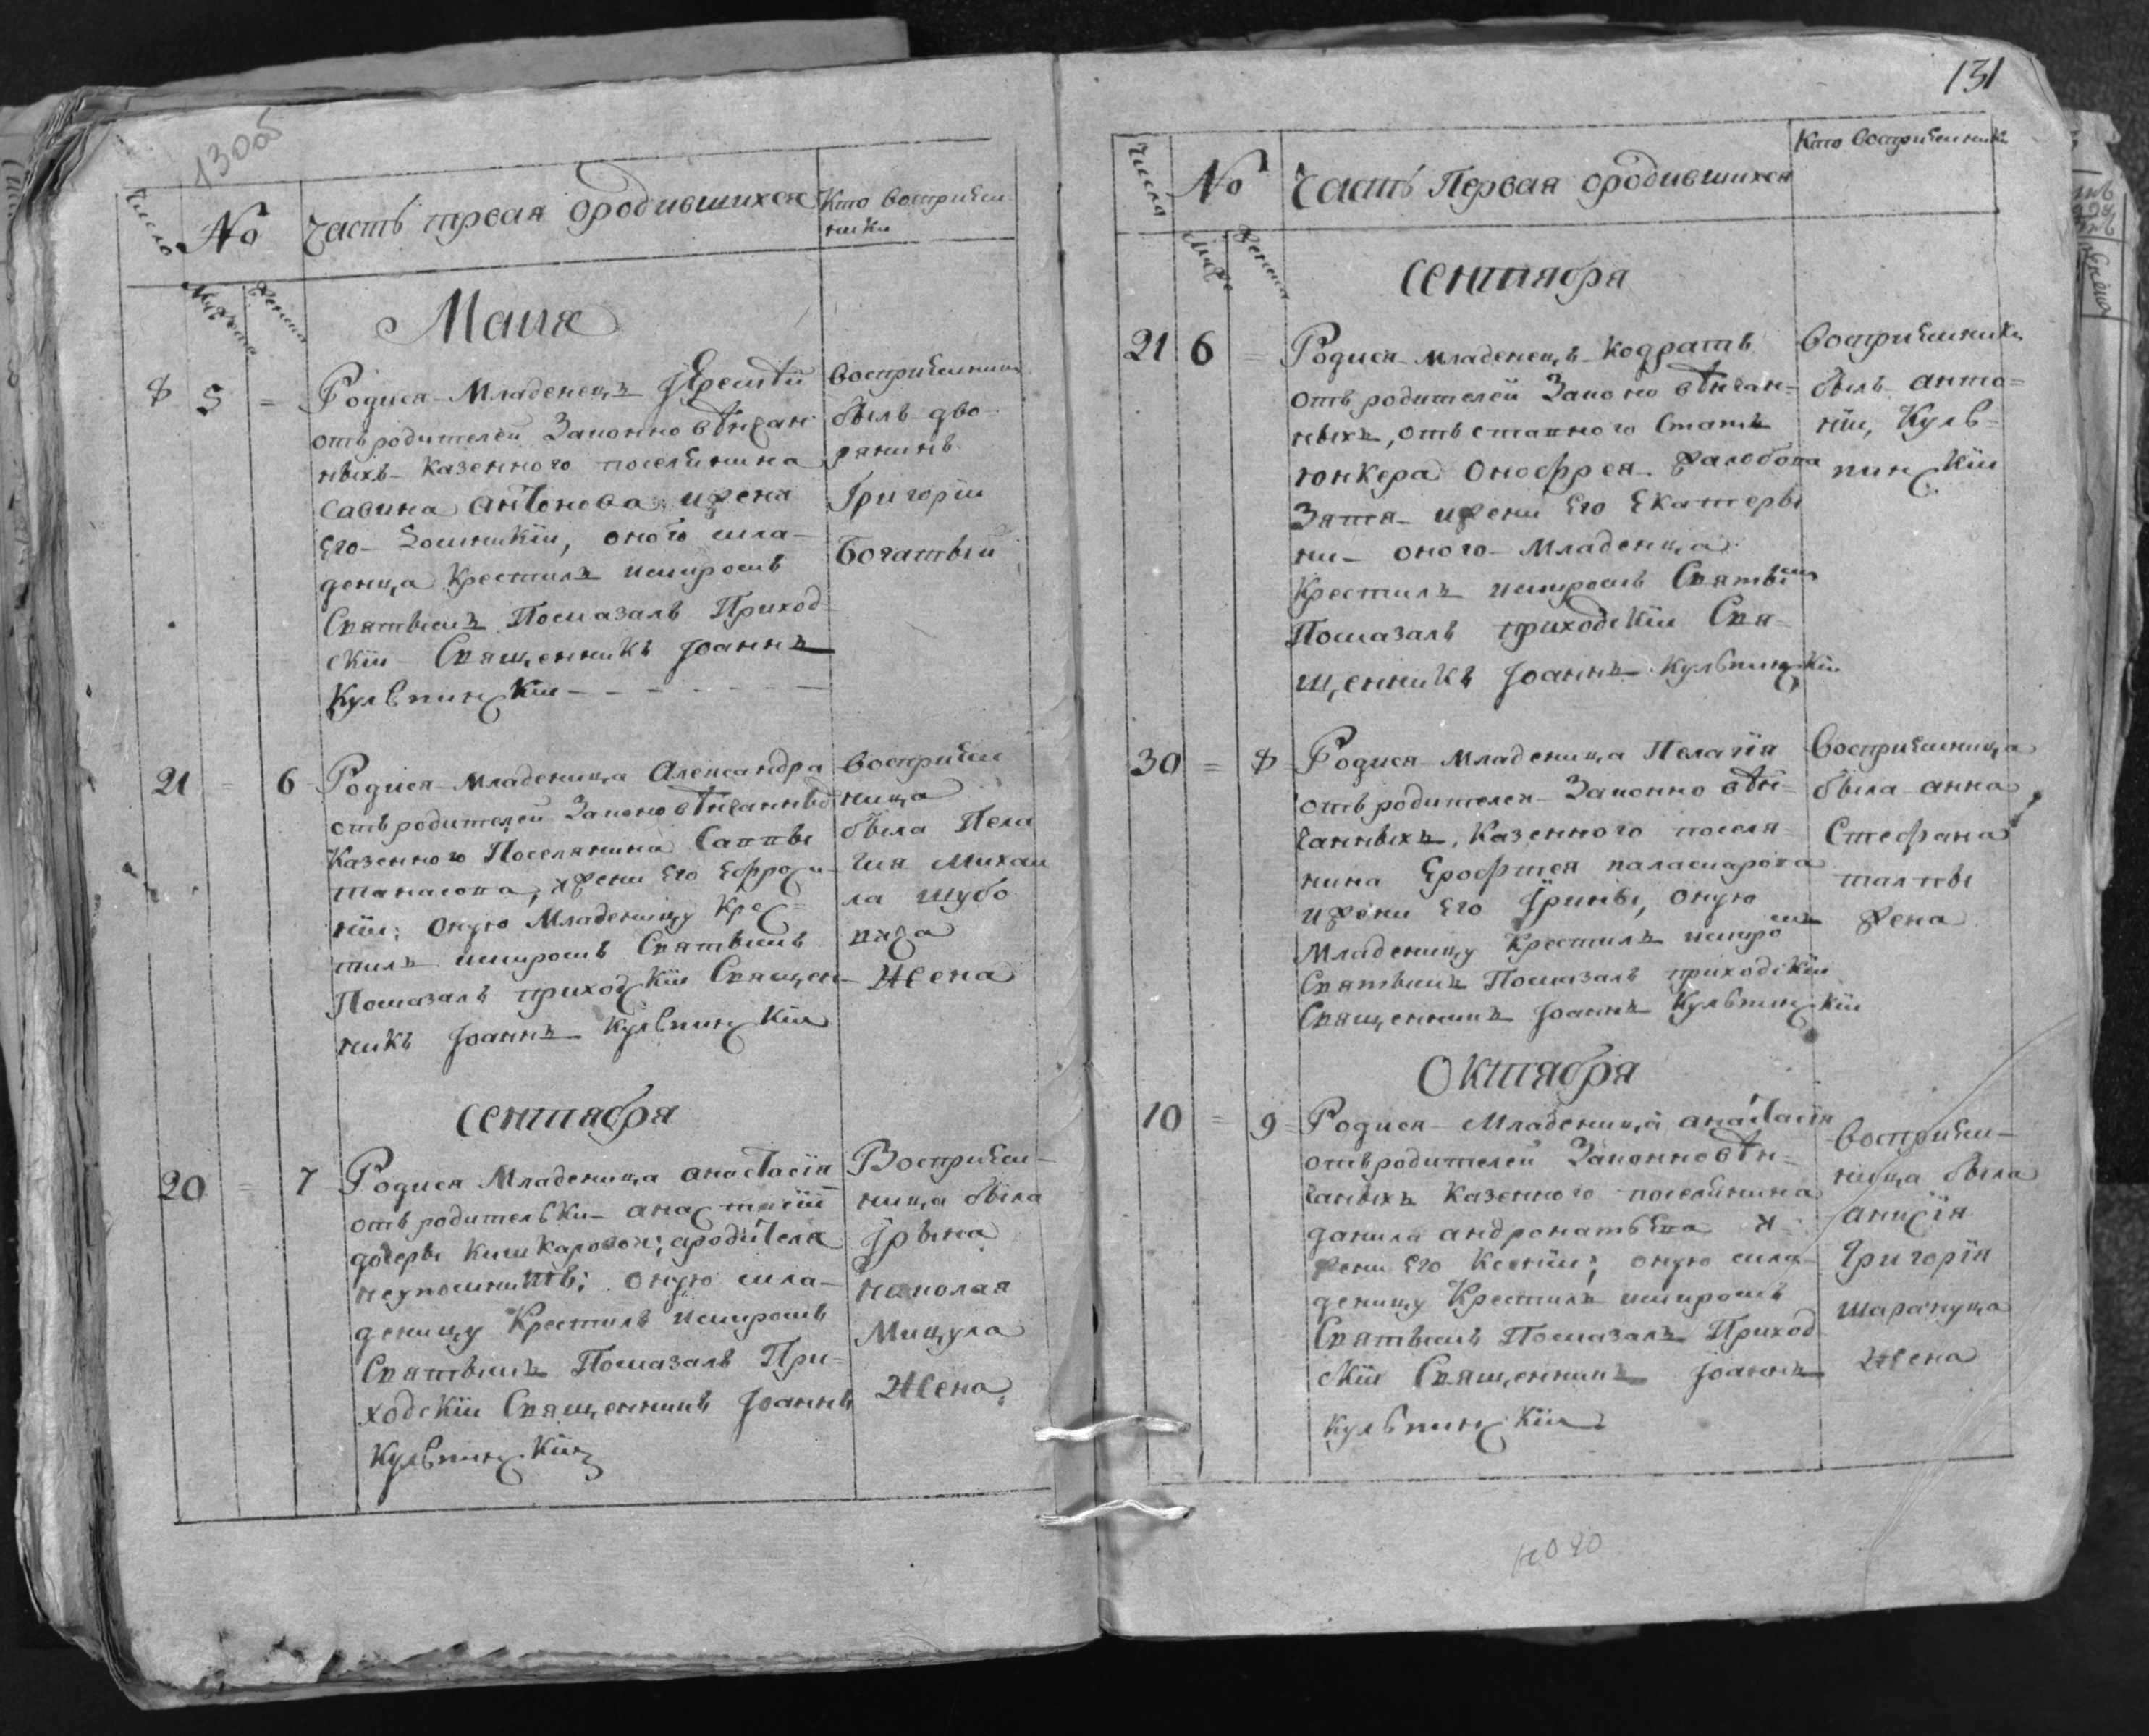 130об
Число
№
Часть первая ородившихся
Кто восприем
ники
Мужеска
Женска
Маия
8 5 =
Родися Младенецъ
отъ родителей Законно вѣнчан
ныхъ Казенного поселянина
Савина Антонова ижена
Его оного мла-
денца крестилъ имиромъ
Святымъ Помазалъ Приход
скїи Священникъ Iоаннъ
Кульпинскїи
восприемникъ
былъ дво
рянинъ
Григорїи
Богатый
21 = 6
Родися Младеница Александра
отъ родителей Законо вѣнчанныхъ
Казенного Поселянина Саввы
танасова, ижени Его Ефроси
нїи; оную Младеницу Крес=
тилъ имиромъ Святымъ
Помазалъ приходскїи Священ-
никъ Iоаннъ Кульпинскїи
восприем
ница
была Пела
гия Михаи
ла шубо
Жена
сентября
20 = 7
Родися Младеница анастасїя
отъ родительки анастасїи
дочеры Кишкаровои; ародителя
неупомнитъ; оную мла-
деницу Крестилъ имиромъ
Святымъ Помазалъ При=
ходскїи Священникъ Iоаннъ
Кульпинскїи
Восприем-
ница была
Iрына
николая
Мицула
Жена
131
Число
№
Часть Первая ородившихся
Кто восприемники
Мужес
Женска
сентября
21 6 =
Родися младенецъ Кодратъ
отъ родителей Законо вѣнчан-
ныхъ, отъставного Статъ
юнкера Онофрея
Зятя ижени Его Екатеры
ни оного Младенца
Крестилъ имиромъ Святымъ
Помазалъ приходскїи Свя-
щенникъ Iоаннъ Кульпинскїи
восприемникъ
былъ анто=
нїи, Куль=
пинскїи
30 = 8
Родися Младеница Пелагїя
отъ родителея Законно вѣн=
чанныхъ, Казенного поселя=
нина Ерофтея паламарова
ижени Его Iрины, оную
Младеницу Крестилъ имиромъ
Святымъ Помазалъ приходскїи
Священникъ Iоаннъ Кульпинскїи
восприемница
была анна
Стефана
жена
Октября
10 = 9
Родися Младеница анастасїя
отъродителей Законновѣн=
чаныхъ Казенного поселянина
данила андронатьева и
жени Его Ксенїи; оную мла
деницу Крестилъ имиромъ
Святымъ Помазалъ Приход
скїи Священникъ Iоаннъ
Кульпинскїи
восприем-
ница была
анисїя
Григорїя
шарануца
Жена